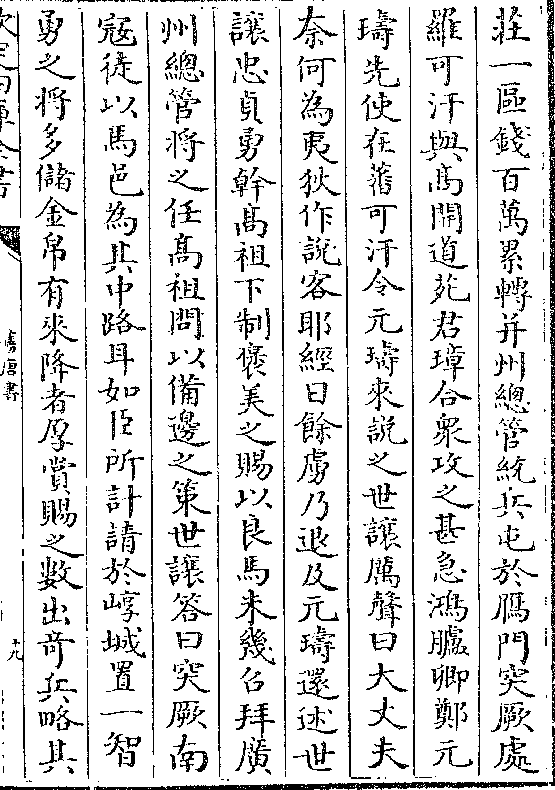 莊一區錢百萬累轉并州總管統兵屯於鴈門突厥處
羅可汗與高開道苑君璋合衆攻之甚急鴻臚卿鄭元
璹先使在蕃可汗令元璹來說之世讓厲聲曰大丈夫
奈何為夷狄作說客耶經日餘虜乃退及元璹還述世
讓忠貞勇幹髙祖下制褒美之賜以良馬未幾召拜廣
州總管將之任髙祖問以備邊之策世讓答曰突厥南
冦徒以馬邑為其中路耳如臣所計請於崞城置一智
勇之將多儲金帛有來降者厚賞賜之數出竒兵略其
欽定四庫全書
舊唐書
十九